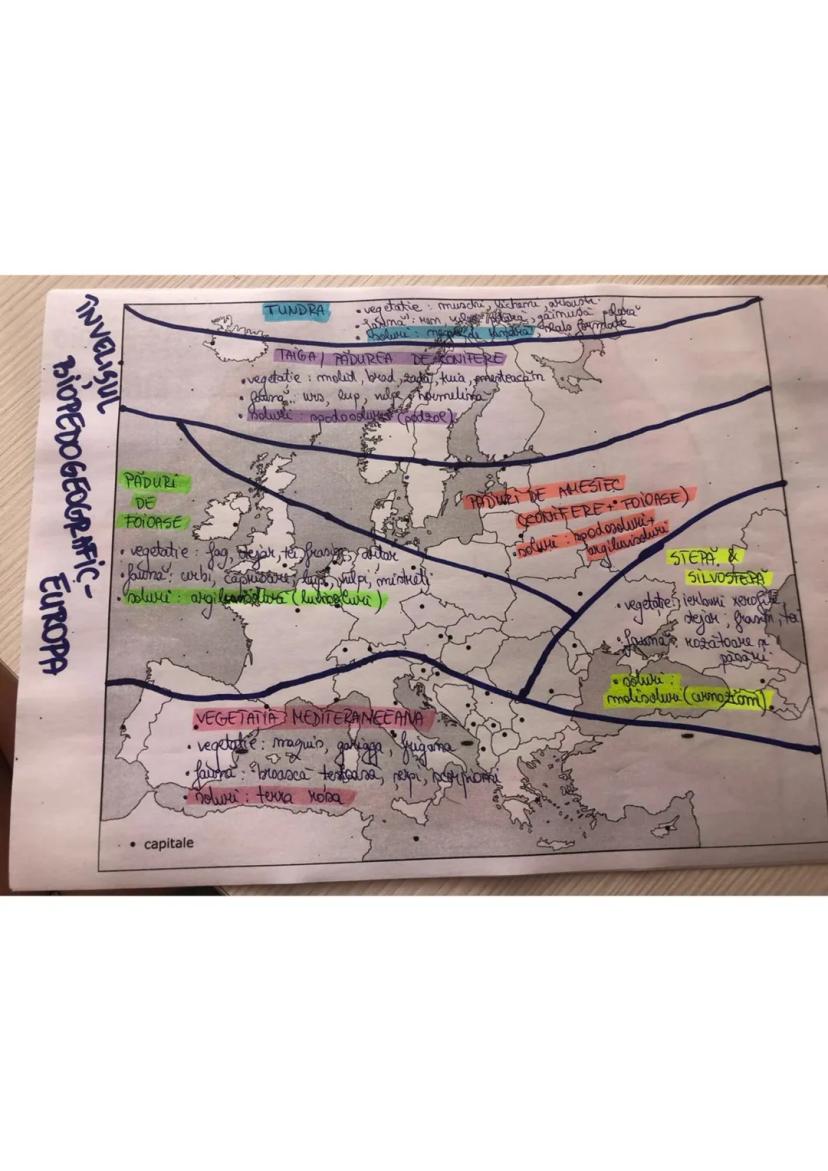 ÎNVELIȘUL
BIOPEDOGEOGRAFIC-
EUROPA
TUNDRA
• vegetatie : muschi, licheni, arbusti
• faună : ren, vulpe polară, găinușă polară
• soluri : negre de tundră, slab formate
TAIGA / PĂDUREA DE CONIFERE
• vegetatie : molid, brad, zadă, tuia, mesteacăn
• faună : urs, lup, vulpe, hermelina
• soluri : spodosoluri (podzol)
PĂDURI
DE
FOIOASE
• vegetatie : fag, stejar, tei, frasin, arțar
• faună : cerbi, căprioare, lupi, vulpi, mistreti
• soluri : argiluvisoluri (luvisoluri)
PĂDURI DE AMESTEC
(CONIFERE + FOIOASE)
• soluri : spodosoluri +
argiluvisoluri
STEPĂ &
SILVOSTEPĂ
• vegetatie : ierburi xerofite,
stejar, frasin, tei
• faună : rozătoare și
păsări
• soluri :
molisoluri (cernoziom)
VEGETATIA MEDITERANEEANA
• vegetatie : maquis, gariga, frigana
• faună : broasca testoasa, serpi, scorpioni
• soluri : terra rosa
• capitale